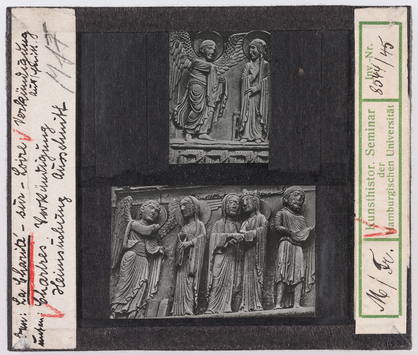 oben: La Charité-sur-Loire Verkündigung
Ausschnitt
unten: Chartres Verkündigung
Heimsuchung Ausschnitt
Kunsthistor. Seminar
der
Hamburgischen Universität
Inv.-Nr.
M/Fr.